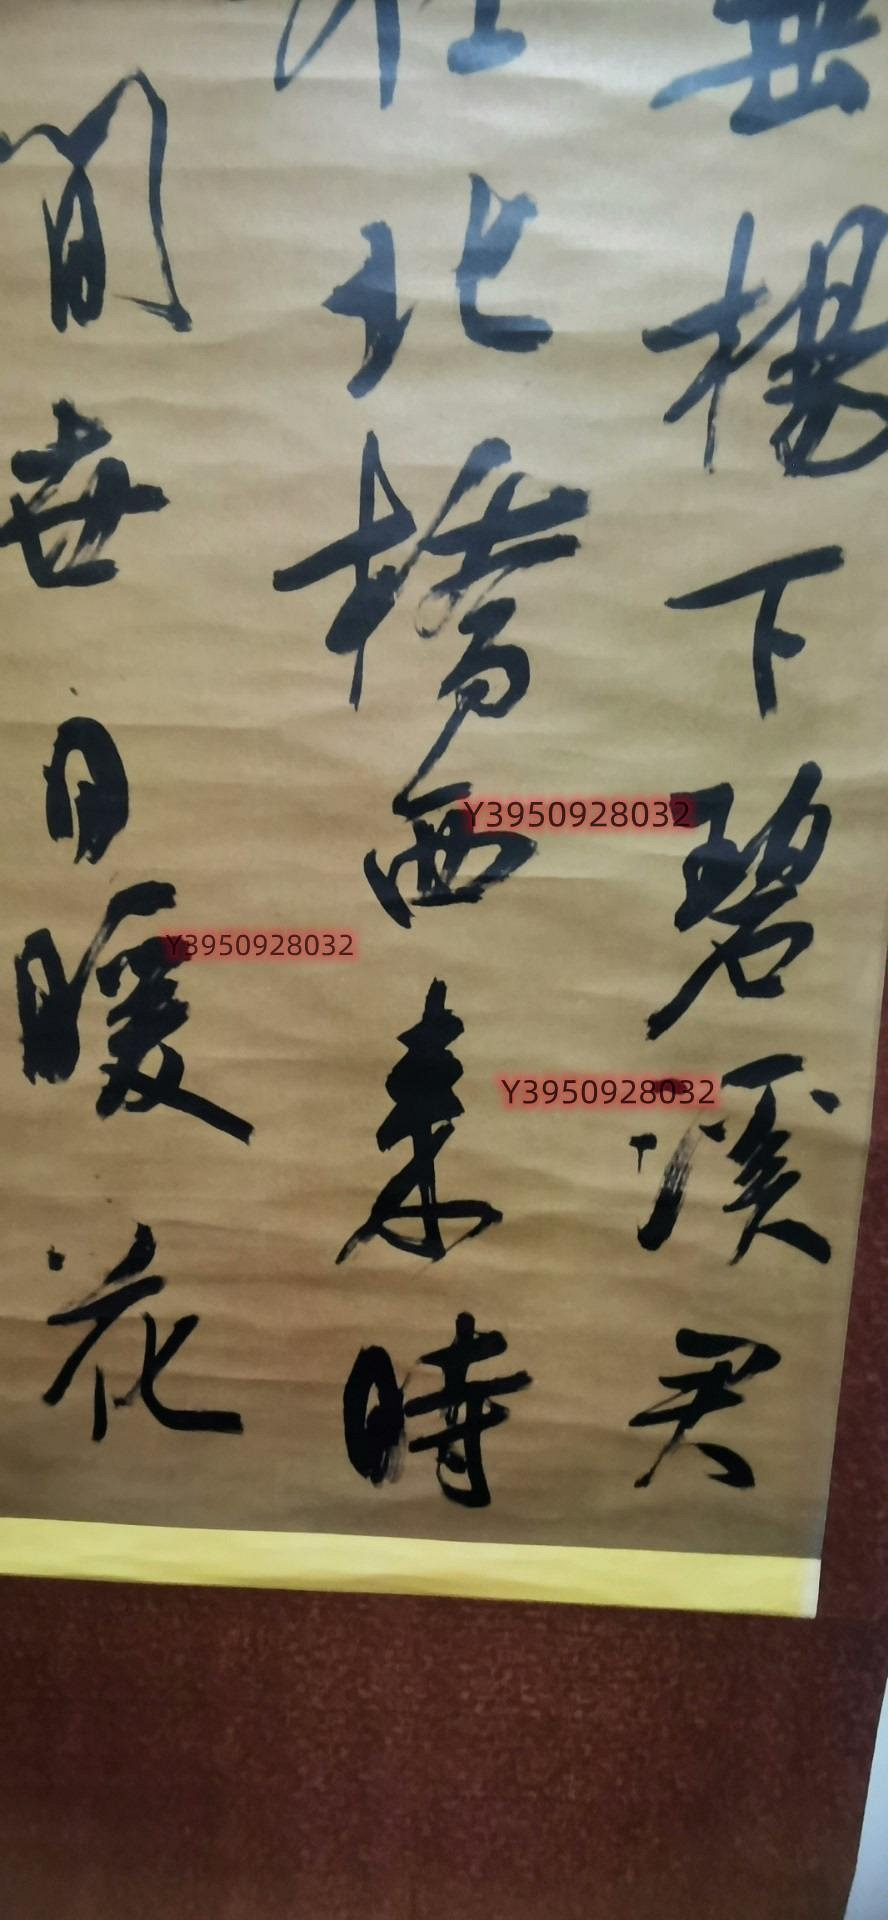 垂楊下碧溪君
在北橋西來時
間無日暖花
Y3950928032
Y3950928032
Y3950928032